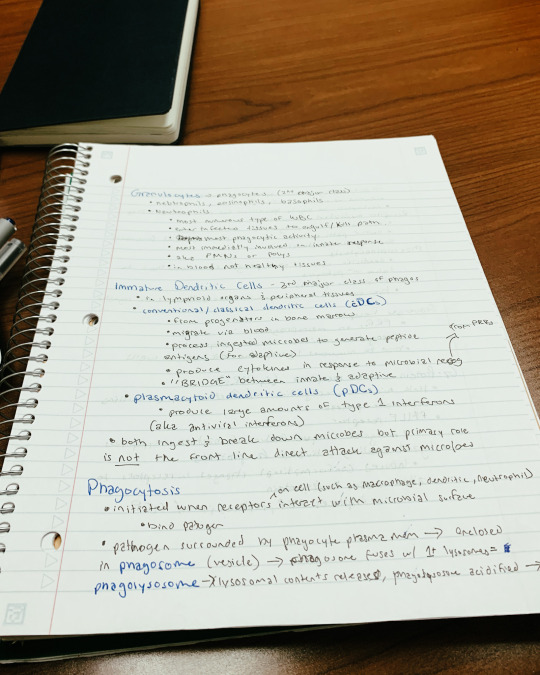 Granulocytes - phagocytes (2nd major class)
• neutrophils, eosinophils, basophils
• Neutrophils
• most numerous type of WBC
• enter infected tissues to engulf/kill path.
• most phagocytic activity
• most immediately involved in innate response
• aka PMNs or polys
• in blood not healthy tissues
Immature Dendritic Cells - 3rd major class of phagos
• in lymphoid organs & peripheral tissues
• conventional/classical dendritic cells (cDCs)
• from progenitors in bone marrow
• migrate via blood
from PRRs
• process ingested microbes to generate peptide
antigens (for adaptive)
• produce cytokines in response to microbial recog
• "BRIDGE" between innate & adaptive
• plasmacytoid dendritic cells (pDCs)
• produce large amounts of type 1 interferons
(aka antiviral interferons)
• both ingest & break down microbes but primary role
is not the front line direct attack against microbes
Phagocytosis
on cell (such as macrophage, dendritic, neutrophil)
• initiated when receptors interact with microbial surface
• bind pathogen
• pathogen surrounded by phagocyte plasma mem → enclosed
in phagosome (vesicle) → phagosome fuses w/ 1+ lysosomes =
phagolysosome → lysosomal contents released, phagolysosome acidified →